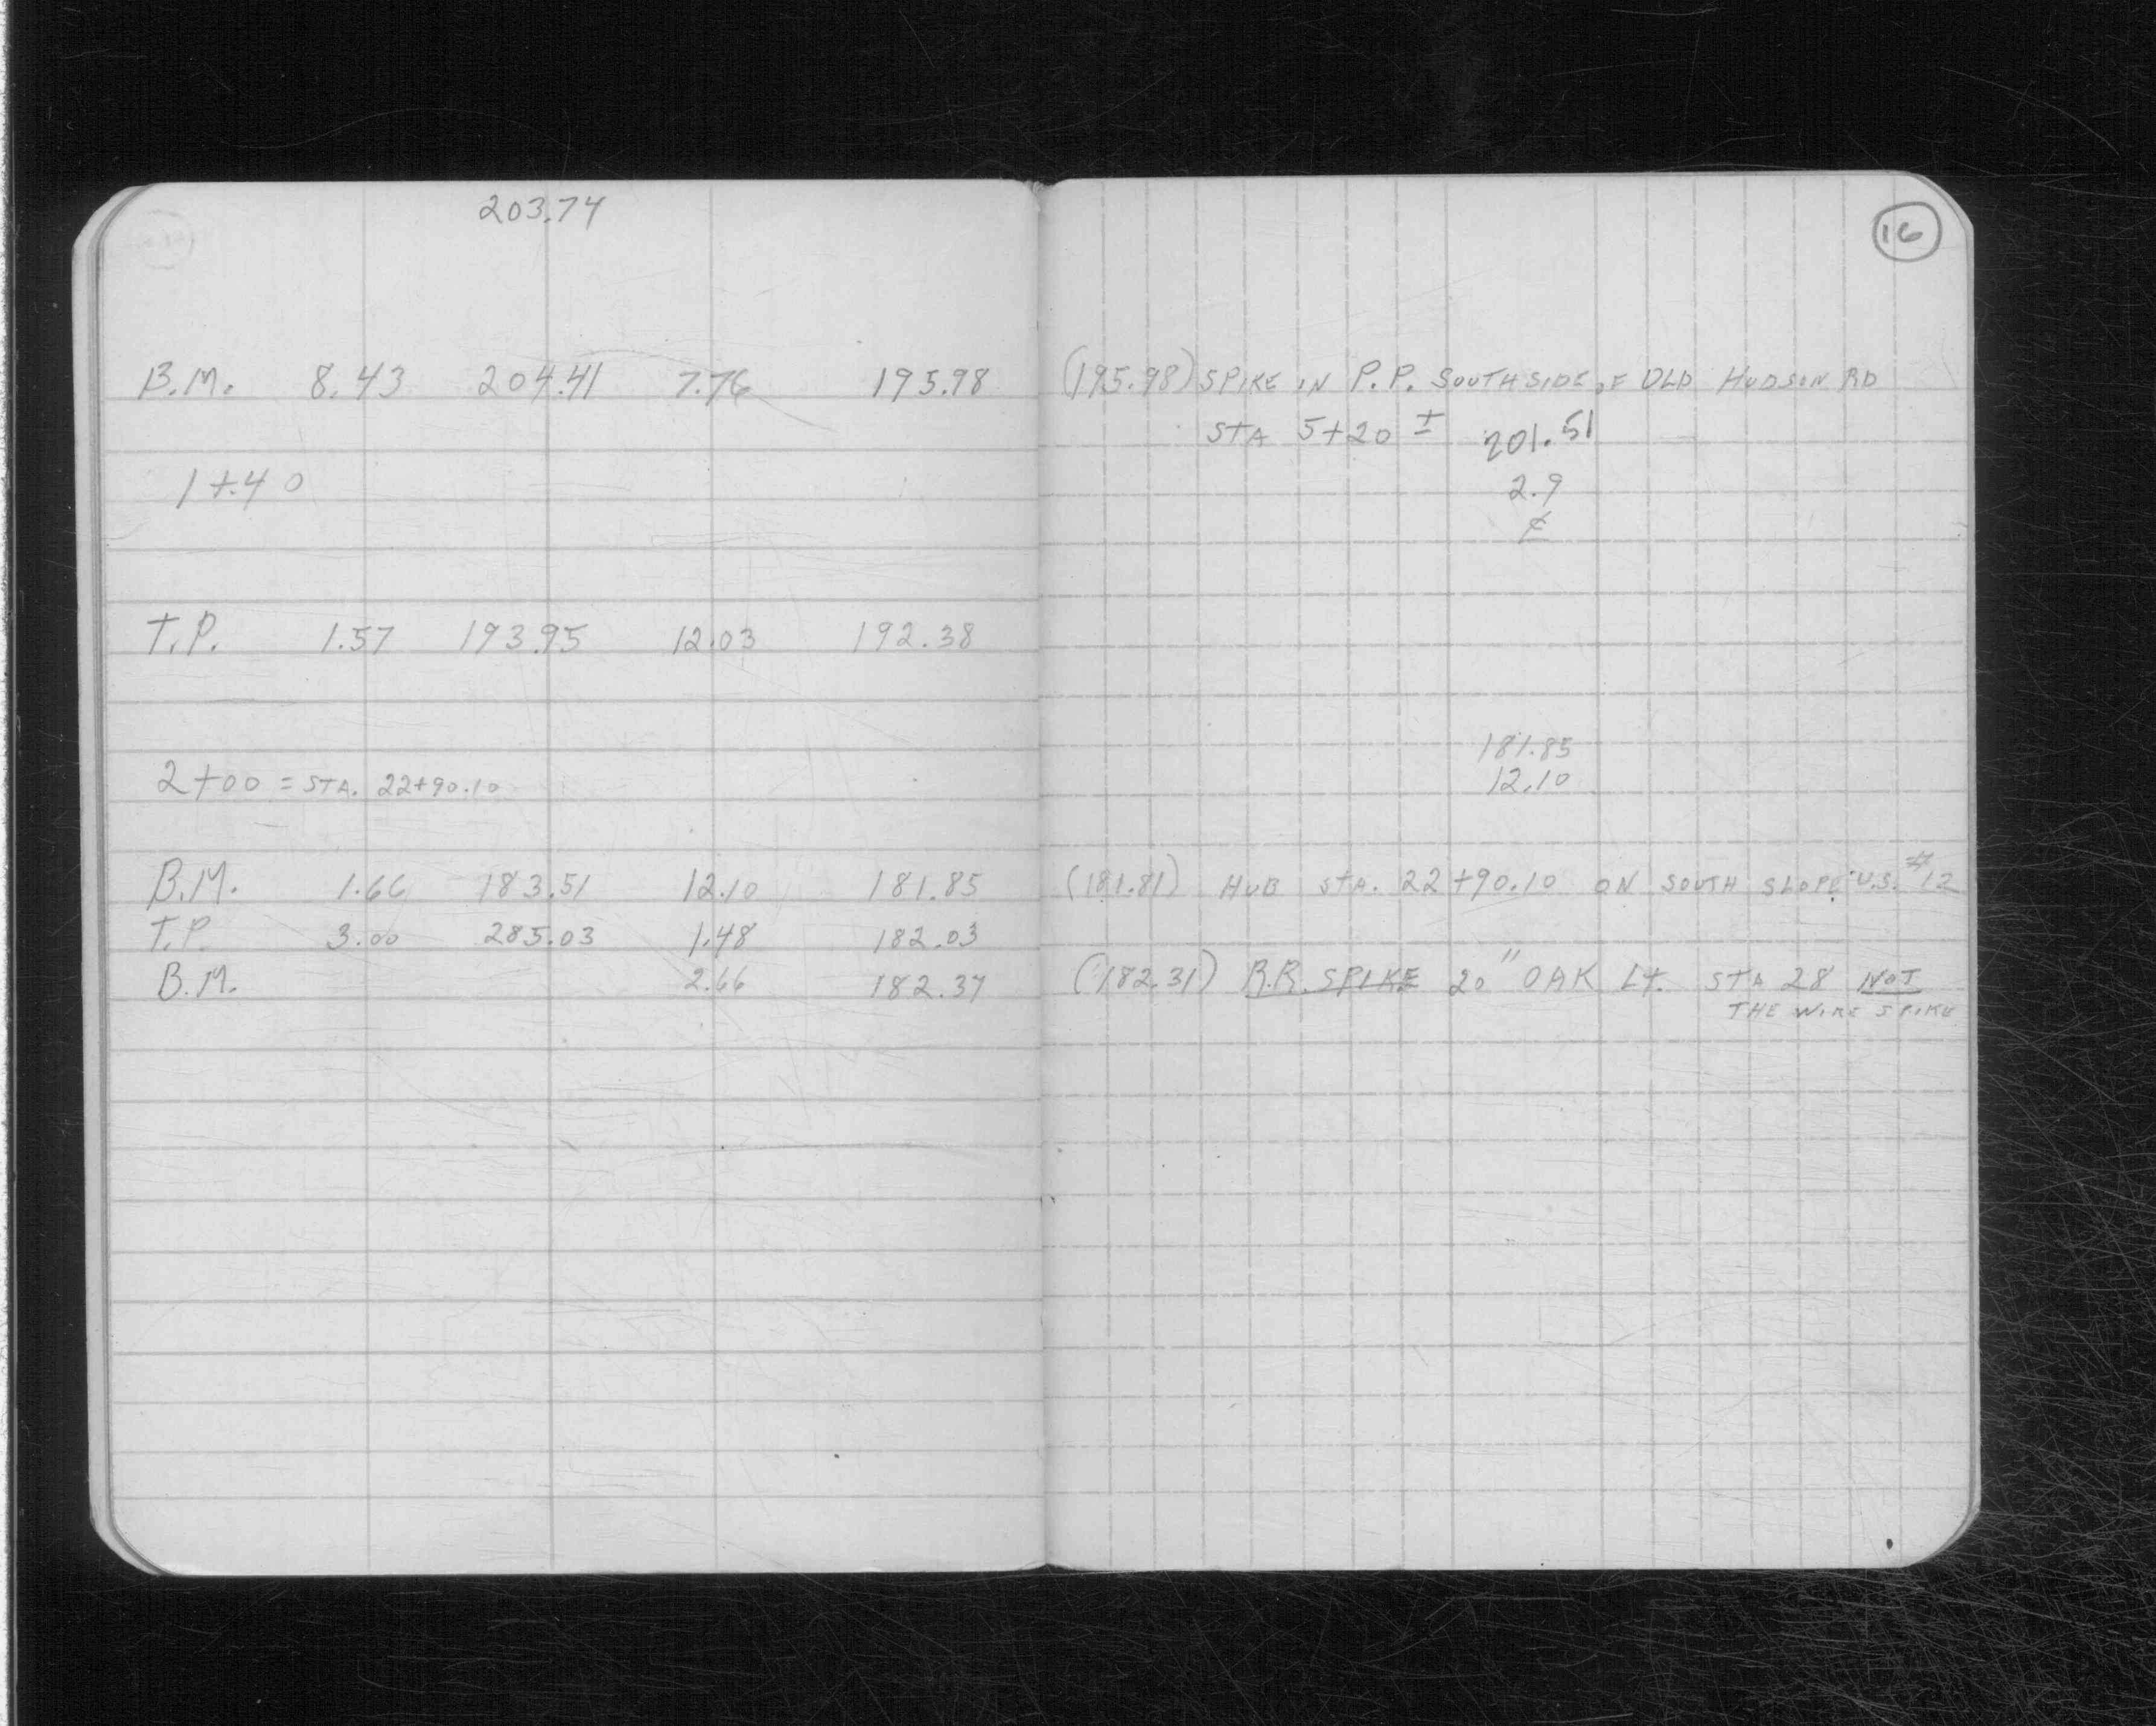 203.74
16
B.M. 8.43 204.41 7.76 195.98 (195.98) SPIKE IN P.P. SOUTH SIDE OF OLD HUDSON RD
STA 5+20 ± 201.51
1+40 2.9
℄
T.P. 1.57 193.95 12.03 192.38
181.85
2+00 = STA. 22+90.10 12.10
B.M. 1.66 183.51 12.10 181.85 (181.81) HUB STA. 22+90.10 ON SOUTH SLOPE U.S. #12
T.P. 3.00 285.03 1.48 182.03
B.M. 2.66 182.37 (182.31) R.R. SPIKE 20" OAK Lt. STA 28 NOT
THE WIRE SPIKE